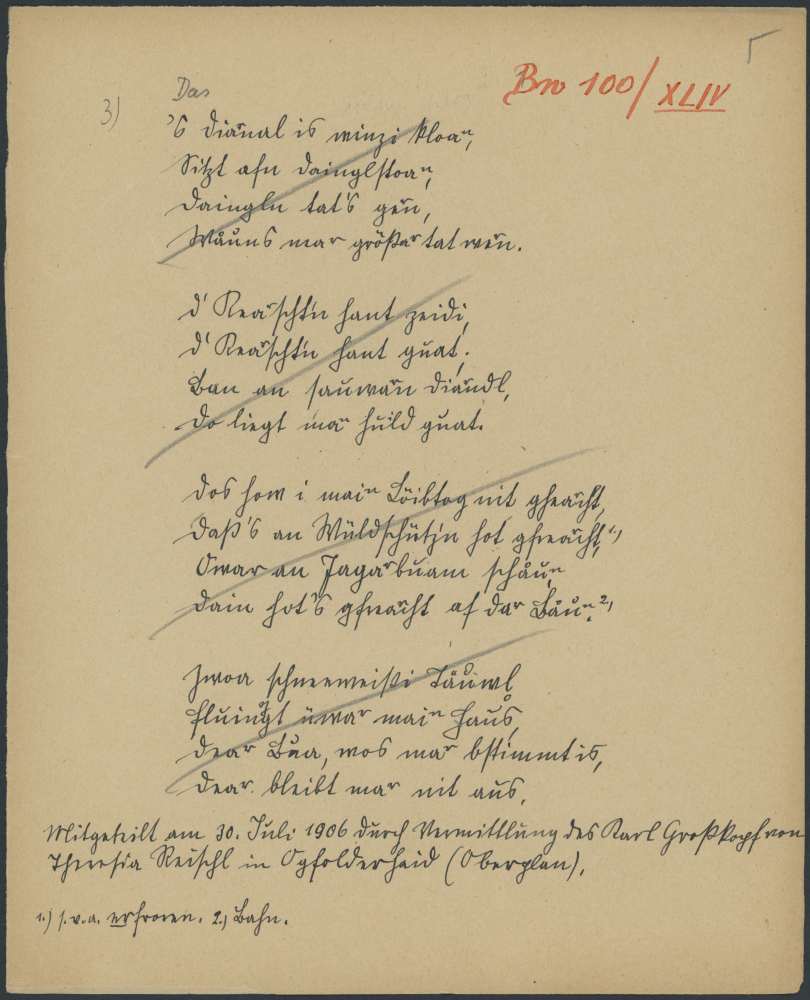 5
Bn 100/XLIV
3)
Das
's Diānal is winzi kloaⁿ,
Sitzt afn Dainglstoaⁿ,
Daingln tat's gern,
Wånns mar größar tat wern.
d' Keaʳschtn hant zeidi,
d' Keaʳschtn hant guat.
Ban an sauwan Diandl,
Do liegt maʳ huld guat.
Dos how i maiⁿ Löibtog nit gheaʳscht,
Daß's an Wüldschützn hot gfreaʳscht¹⁾
Owar an Jagaʳbuam schåuⁿ
Dain hot's gfreaʳscht af dar Båuⁿ.²⁾
Zwoa schneeweißi Täuwl
fluingt üwaʳ maiⁿ Haus,
Dear Bua, wos maʳ bstimmt is,
Dear bleibt mar nit aus.
Mitgeteilt am 30. Juli 1906 durch Vermittlung des Karl Großkopf von
Theresia Reischl in Ogfolderhaid (Oberplan).
1.) s.v.a. erfroren. 2.) Bahn.